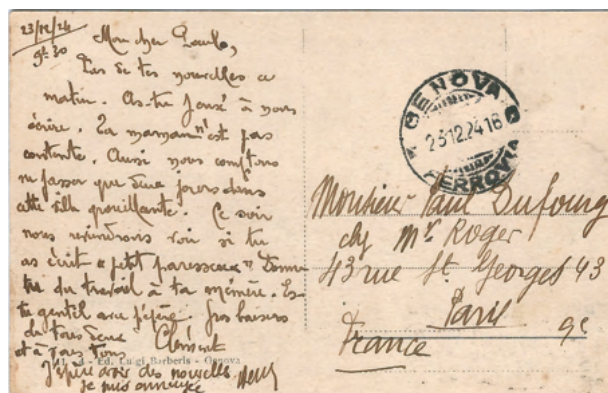 23/12/24
9h30
Mon cher Paul,
Pas de tes nouvelles ce
matin. As-tu pensé à nous
écrire. Ta maman n'est pas
contente. Aussi nous comptons
ne passer que deux jours dans
cette ville grouillante. Ce soir
nous reviendrons voir si tu
as écrit "petit paresseux" Donne
tu du travail à ta mémère. Es-
tu gentil avec pépère. Gros baisers
de tous deux Clément
et à vous tous
J'espère avoir des nouvelles
je suis
Ed. Luigi Barberis - Genova
GENOVA
23.12.24 16
FERROVIA
Monsieur Paul Dufourg
chz Mr Roger
43 rue St. Georges 43
Paris 9e
France